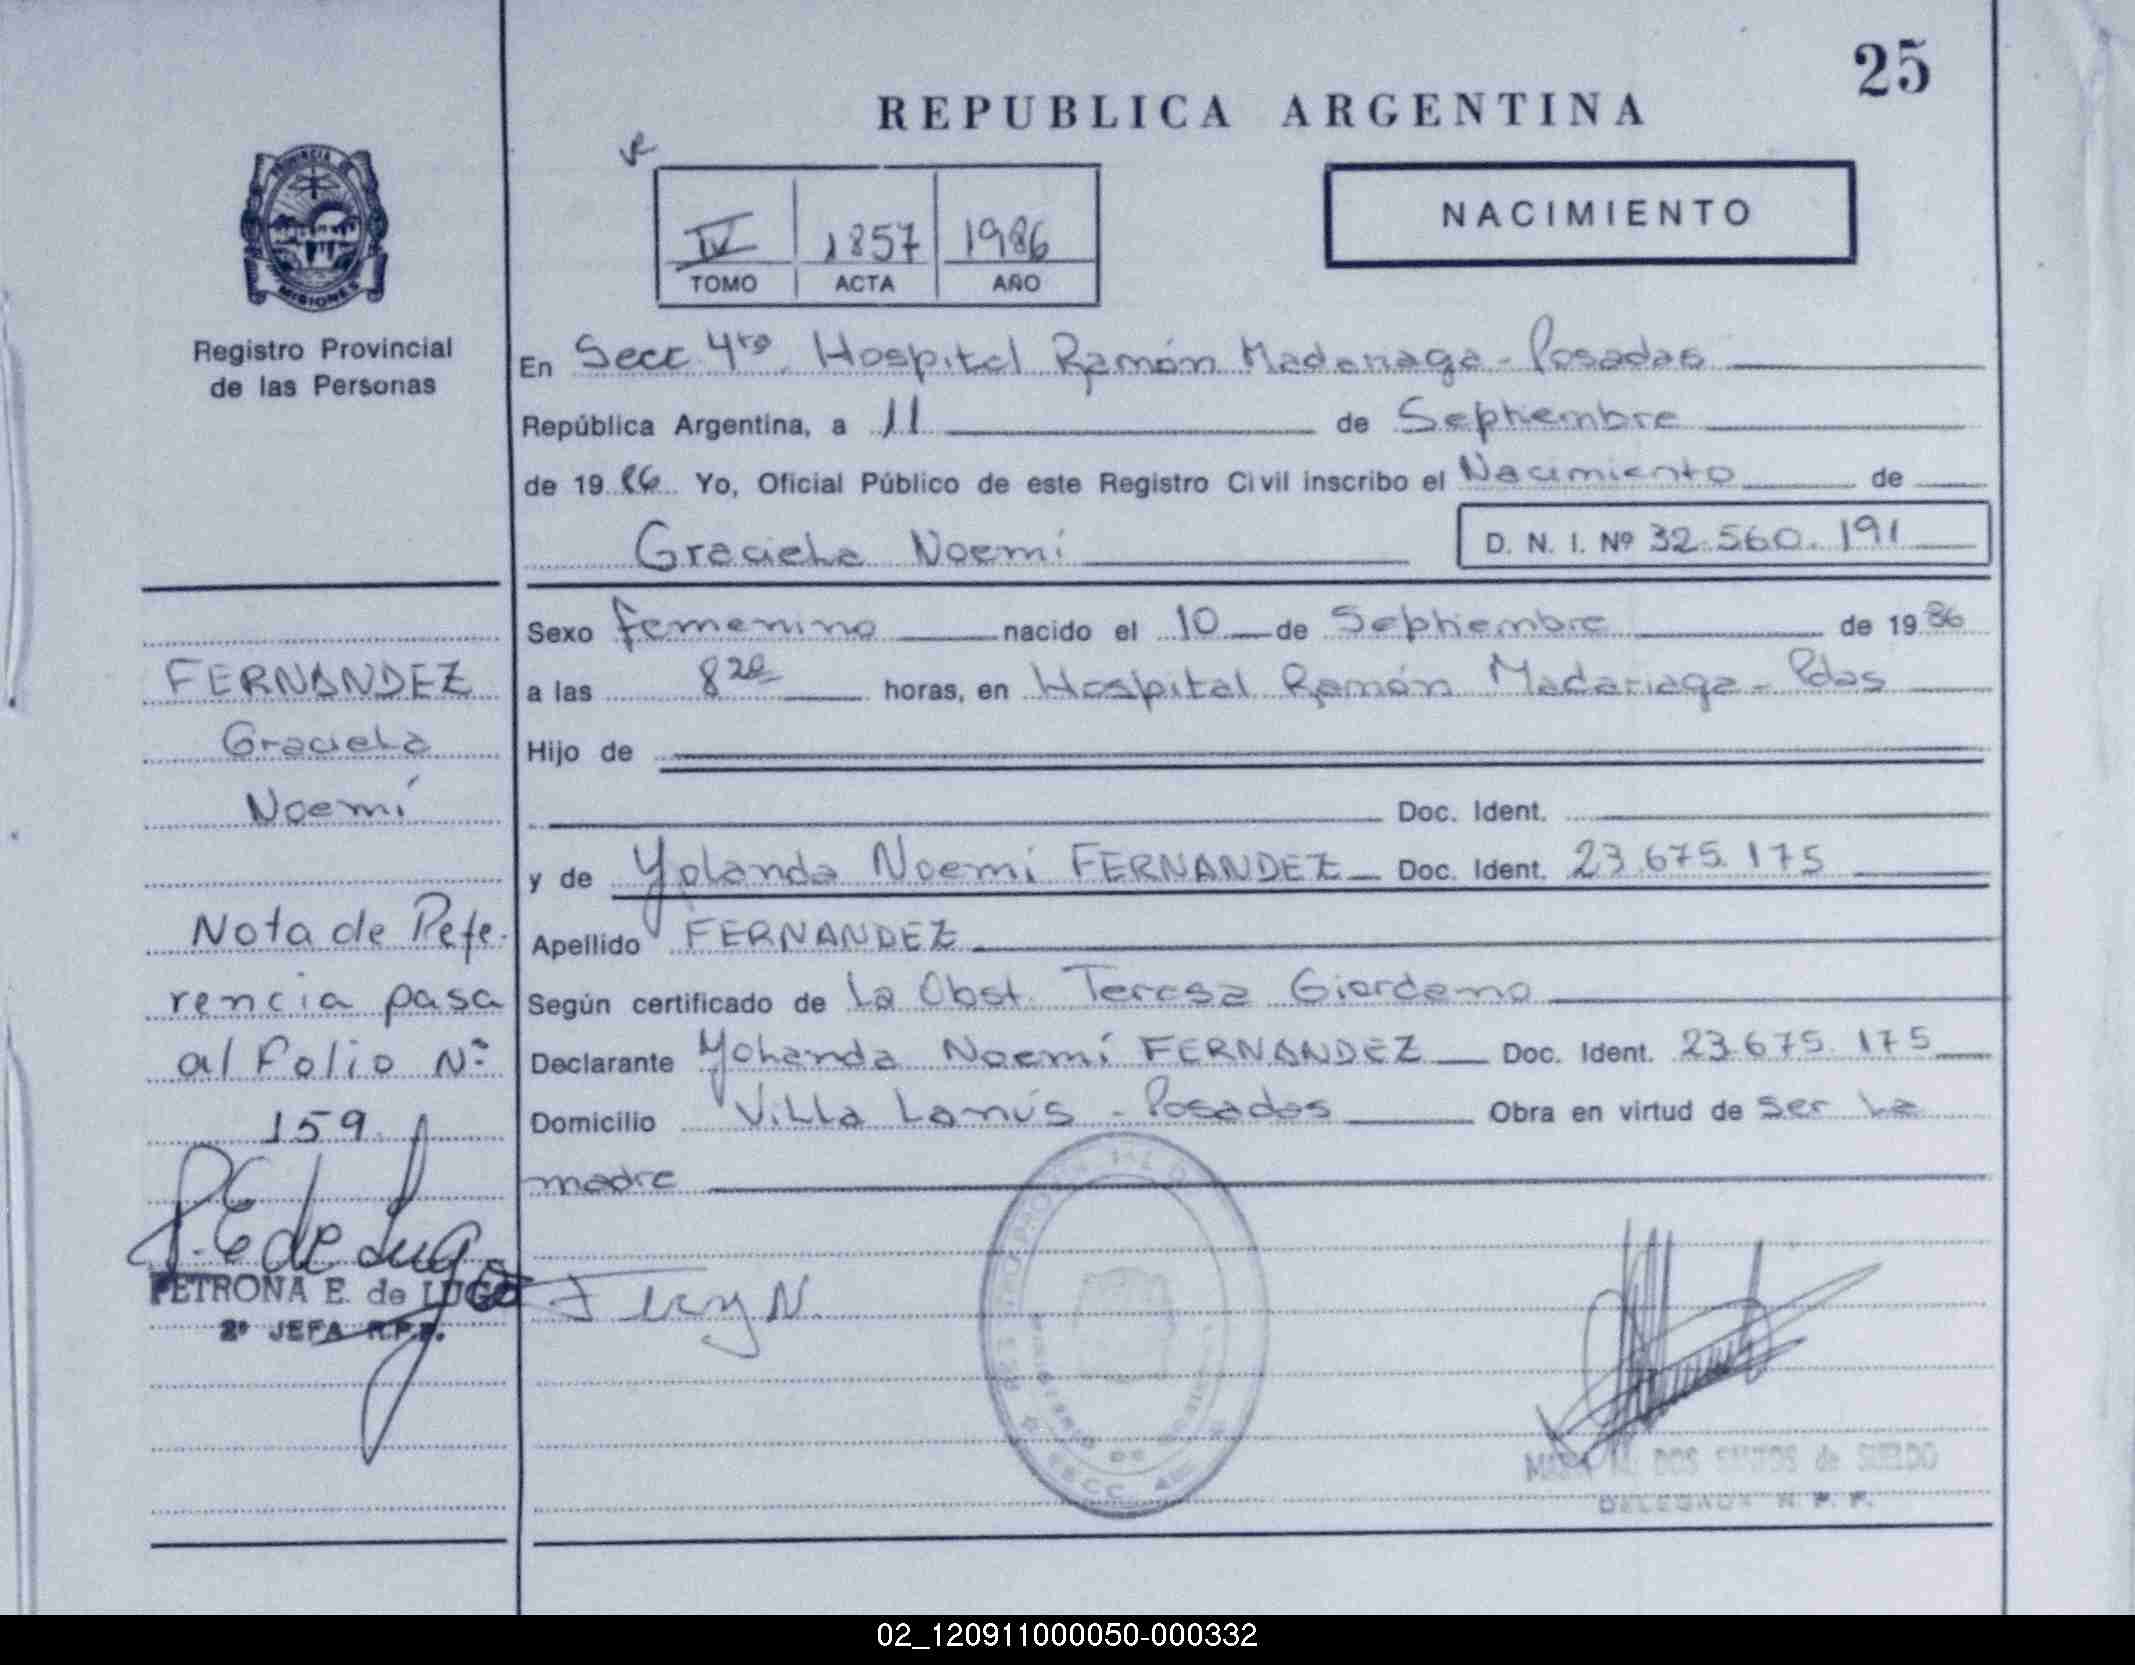 25
REPUBLICA ARGENTINA
NACIMIENTO
IV 1857 1986
TOMO ACTA AÑO
PROVINCIA DE
MISIONES
Registro Provincial
de las Personas
En Secc 4ta. Hospital Ramón Madariaga - Posadas
República Argentina, a 11 de Septiembre
de 1986 Yo, Oficial Público de este Registro Civil inscribo el Nacimiento de
Graciela Noemí D. N. I. Nº 32.560.191
Sexo femenino nacido el 10 de Septiembre de 1986
a las 8 20 horas, en Hospital Ramón Madariaga - Pdas
Hijo de
Doc. Ident.
y de Yolanda Noemí FERNANDEZ Doc. Ident. 23.675.175
Apellido FERNANDEZ
Según certificado de La Obst. Teresa Giordano
Declarante Yolanda Noemí FERNANDEZ Doc. Ident. 23.675.175
Domicilio Villa Lanús - Posadas Obra en virtud de ser la
madre
FERNANDEZ
Graciela
Noemí
Nota de Refe-
rencia pasa
al folio Nº
159.
P. E de Lugo
PETRONA E. de LUGO
2º JEFA R.P.P.
DOS SANTOS de SUELDO
DELEGADA R. P. P.
02_120911000050-000332